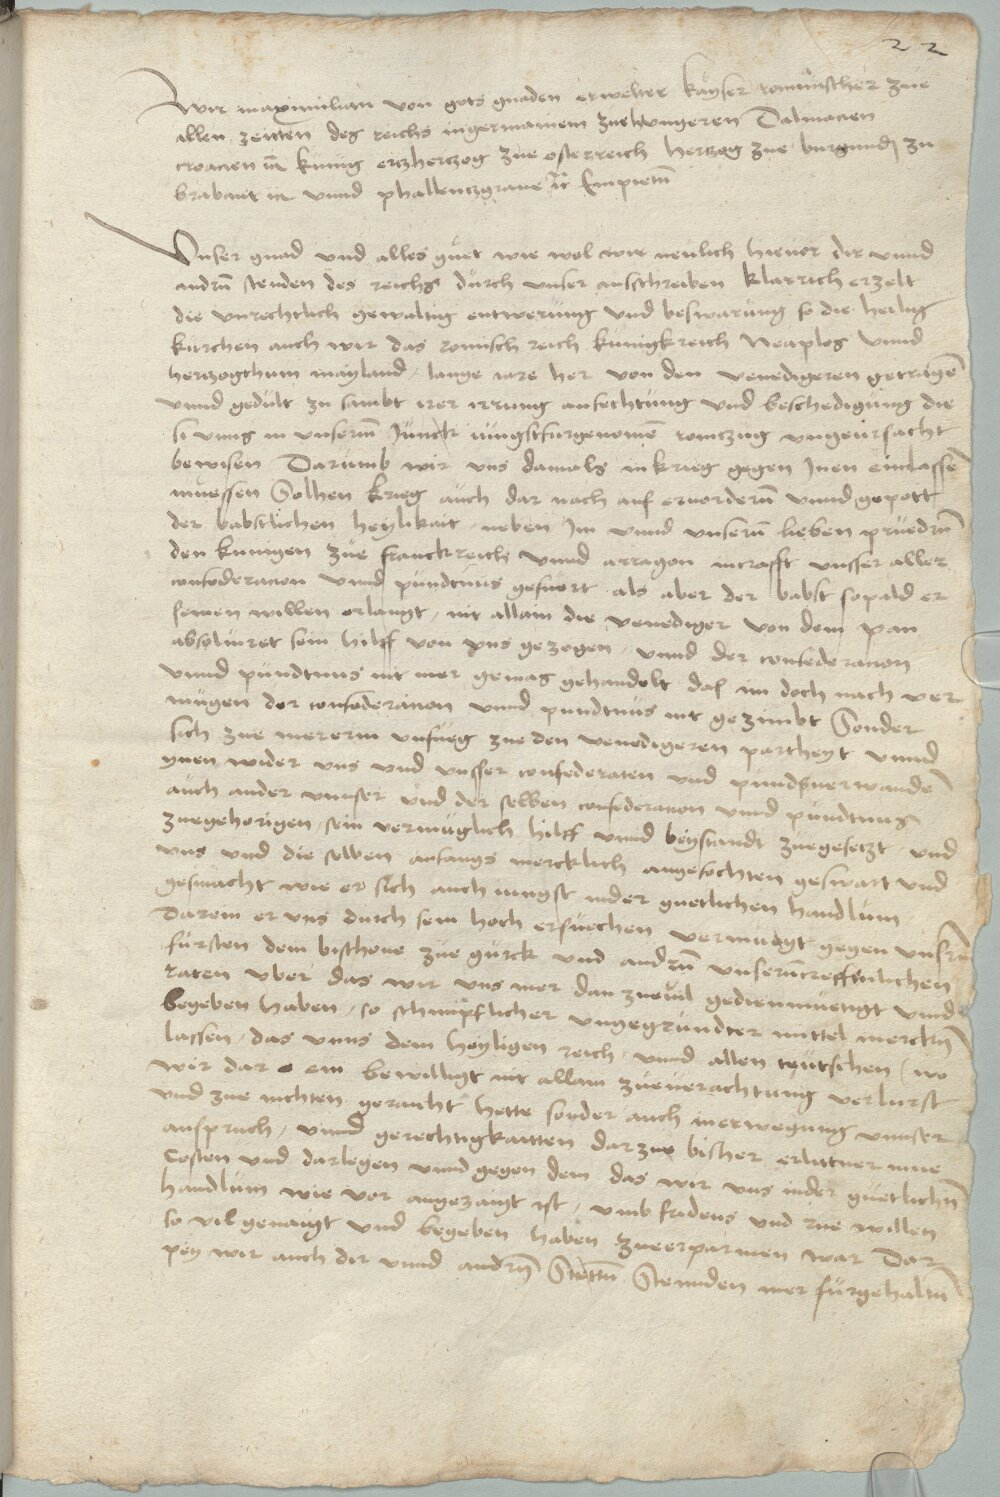 22
Wir maximilian von gots gnaden erwelter kayser romunscher zue
allen zeitten des reichs ingermainem zue hungeren Dalmacien
croacien ec kunig erczherczog zue osterreich herczog zue burgund zu
brabant ec vnnd phallenczgraue ec Empietn
Vnser gnad vnd alles guet wie wol wir neulich hieuor dir vnnd
andrn stenden des reichs durch vnser ausschreiben klarrich erzelt
die vnrechtlich gewaltig entwerung vnd beswarung so die heilig
kirchen auch wir das romisch reich kunigkreich Neaplos vnnd
herczogthum mayland lange iare her von den venedigeren getragen
vnnd gedult zu sambt irer irrung anfechtung vnd beschedigung die
si vnns in vnserm iungstfurgenomen romczug vngeursacht
bewisen Darumb wir vns damals in krieg gegen Inen einlassen
muessen Solhen krieg auch dar nach auf eruordern vnnd gepott
der babstlichen heylikait neben Im vnnd vnsern lieben pruedrn
den kunigen zue franckreich vnnd arragon incrafft vnsser aller
confederacion vnnd puntnus gefuert als aber der babst sopald er
seinen willen erlangt nit allain die venediger von dem pan
absoluiret sein hilff von vns gezogen vnnd der confederacion
vnnd pundtnus nit mer gemas gehandelt das im doch nach ver
mugen der confederacion vnnd pundtnus nit gezimbt Sonder
sich zue mererm vnfueg zue den venedigeren partheyt vnnd
ynen wider vns vnd vnsser confederaten vnd pundsuerwanden
auch ander vnnser vnd der selben confederacion vnnd pundtnus
zuegehorigen sein vermuglich hilff vnnd beystandt zuegesetzt vnd
vns vnd die selben anfangs mercklich angefochten geswart vnd
gesmacht wie er sich auch iungst inder guetlichen handlum
Darein er vns durch sein hoch ersuechen vermuegt gegen vnsrn
fursten dem bischoue zue gurck vnd andrn vnserntreffenlichen
raten vber das wir vns mer dan zueuil gediemmuetigt vnnd
begeben haben so schimpflicher vngegrundter mittel mercken
lassen das vnns dem heyligen reich vnnd allen teutschen wo
wir dar ein bewilligt nit allain zueuerachtung verlurst
vnd zue nichten geraicht hette sonder auch inerwegung vnnser
anspruch vnnd gerechtigkaitten darzue bisher erlittner mue
Costen vnd darlegen vnnd gegen dem das wir vns inder guetlichen
handlum wie vor angezaigt ist vmb fridens vnd rue willen
so vil genaigt vnd begeben haben zueerparmen war Dar
pey wir auch dir vnnd andrn Stettn Stennden mer furgehaltn